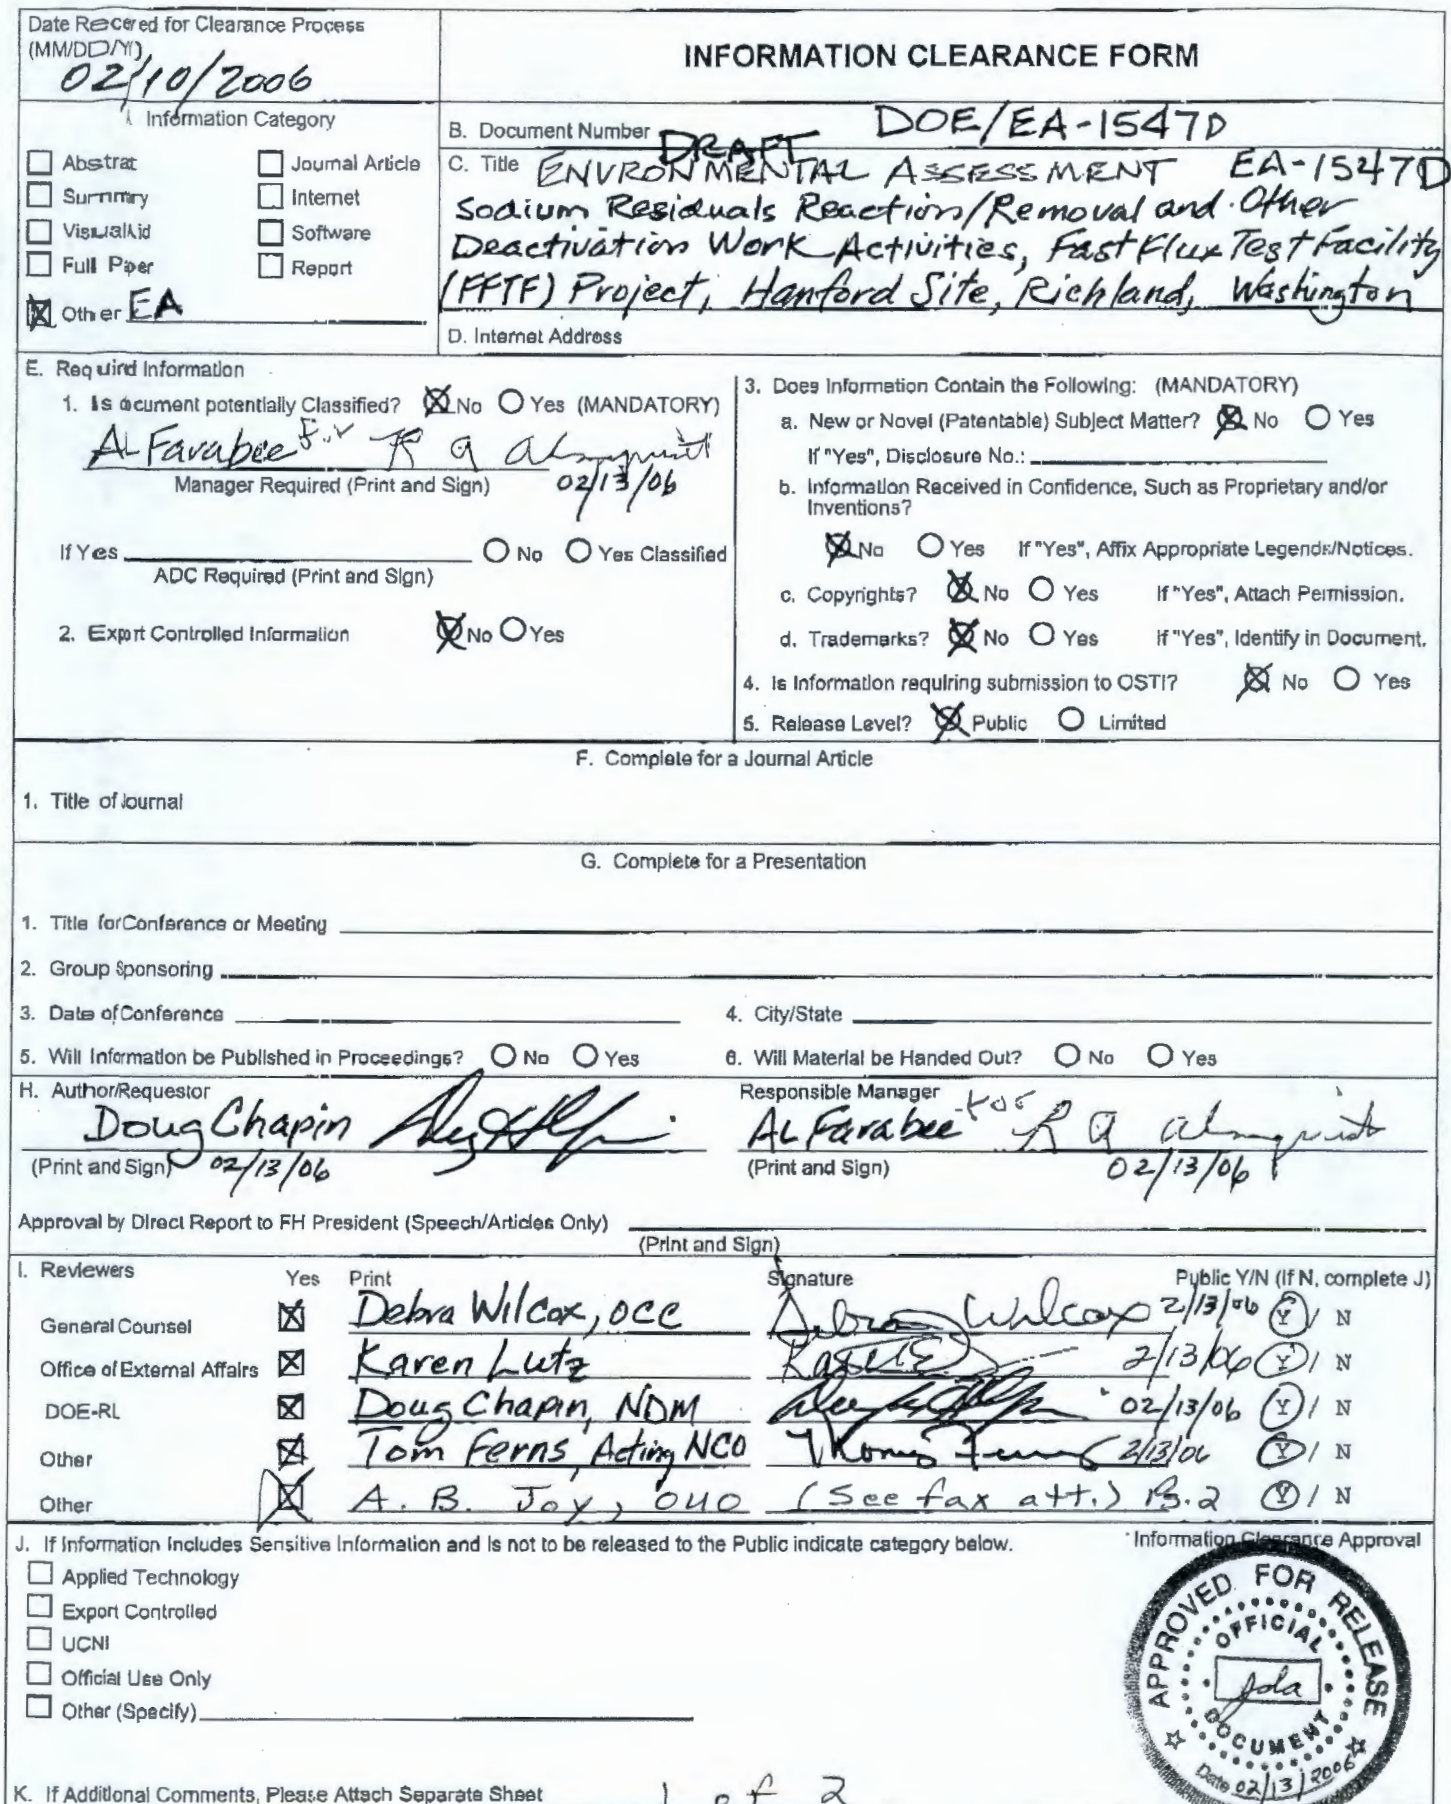 Date Recered for Clearance Process
(MM/DD/Y)
02/10/2006
INFORMATION CLEARANCE FORM
Information Category
Abstrat
Journal Article
Summry
Internet
VisualAid
Software
Full Paper
Report
Other EA
B. Document Number DOE/EA-1547D
DRAFT
C. Title ENVRONMENTAL ASSESSMENT EA-1547D
Sodium Residuals Reaction/Removal and Other
Deactivation Work Activities, Fast Flux Test Facility
(FFTF) Project, Hanford Site, Richland, Washington
D. Internet Address
E. Requird Information
1. Is document potentially Classified? No Yes (MANDATORY)
AL Farabee for R A Almquist
Manager Required (Print and Sign) 02/13/06
If Yes No Yes Classified
ADC Required (Print and Sign)
2. Export Controlled Information No Yes
3. Does Information Contain the Following: (MANDATORY)
a. New or Novel (Patentable) Subject Matter? No Yes
If "Yes", Disclosure No.:
b. Information Received in Confidence, Such as Proprietary and/or
Inventions?
No Yes If "Yes", Affix Appropriate Legends/Notices.
c. Copyrights? No Yes If "Yes", Attach Permission.
d. Trademarks? No Yes If "Yes", Identify in Document.
4. Is Information requiring submission to OSTI? No Yes
5. Release Level? Public Limited
F. Complete for a Journal Article
1. Title of Journal
G. Complete for a Presentation
1. Title for Conference or Meeting
2. Group Sponsoring
3. Date of Conference
4. City/State
5. Will Information be Published in Proceedings? No Yes
6. Will Material be Handed Out? No Yes
H. Author/Requestor
Doug Chapin
(Print and Sign) 02/13/06
Responsible Manager
AL Farabee for R A Almquist
(Print and Sign) 02/13/06
Approval by Direct Report to FH President (Speech/Articles Only)
(Print and Sign)
I. Reviewers Yes Print Signature Public Y/N (If N, complete J)
General Counsel Debra Wilcox, OCC Debra Wilcox 2/13/06 Y / N
Office of External Affairs Karen Lutz 2/13/06 Y / N
DOE-RL Doug Chapin, NDM 02/13/06 Y / N
Other Tom Ferns, Acting NCO 2/13/06 Y / N
Other A. B. Joy, OUO (See fax att.) P.2 Y / N
J. If Information Includes Sensitive Information and Is not to be released to the Public indicate category below.
Applied Technology
Export Controlled
UCNI
Official Use Only
Other (Specify)
Information Clearance Approval
APPROVED FOR RELEASE
OFFICIAL
jda
DOCUMENT
Date 02/13/2006
K. If Additional Comments, Please Attach Separate Sheet
1 of 2